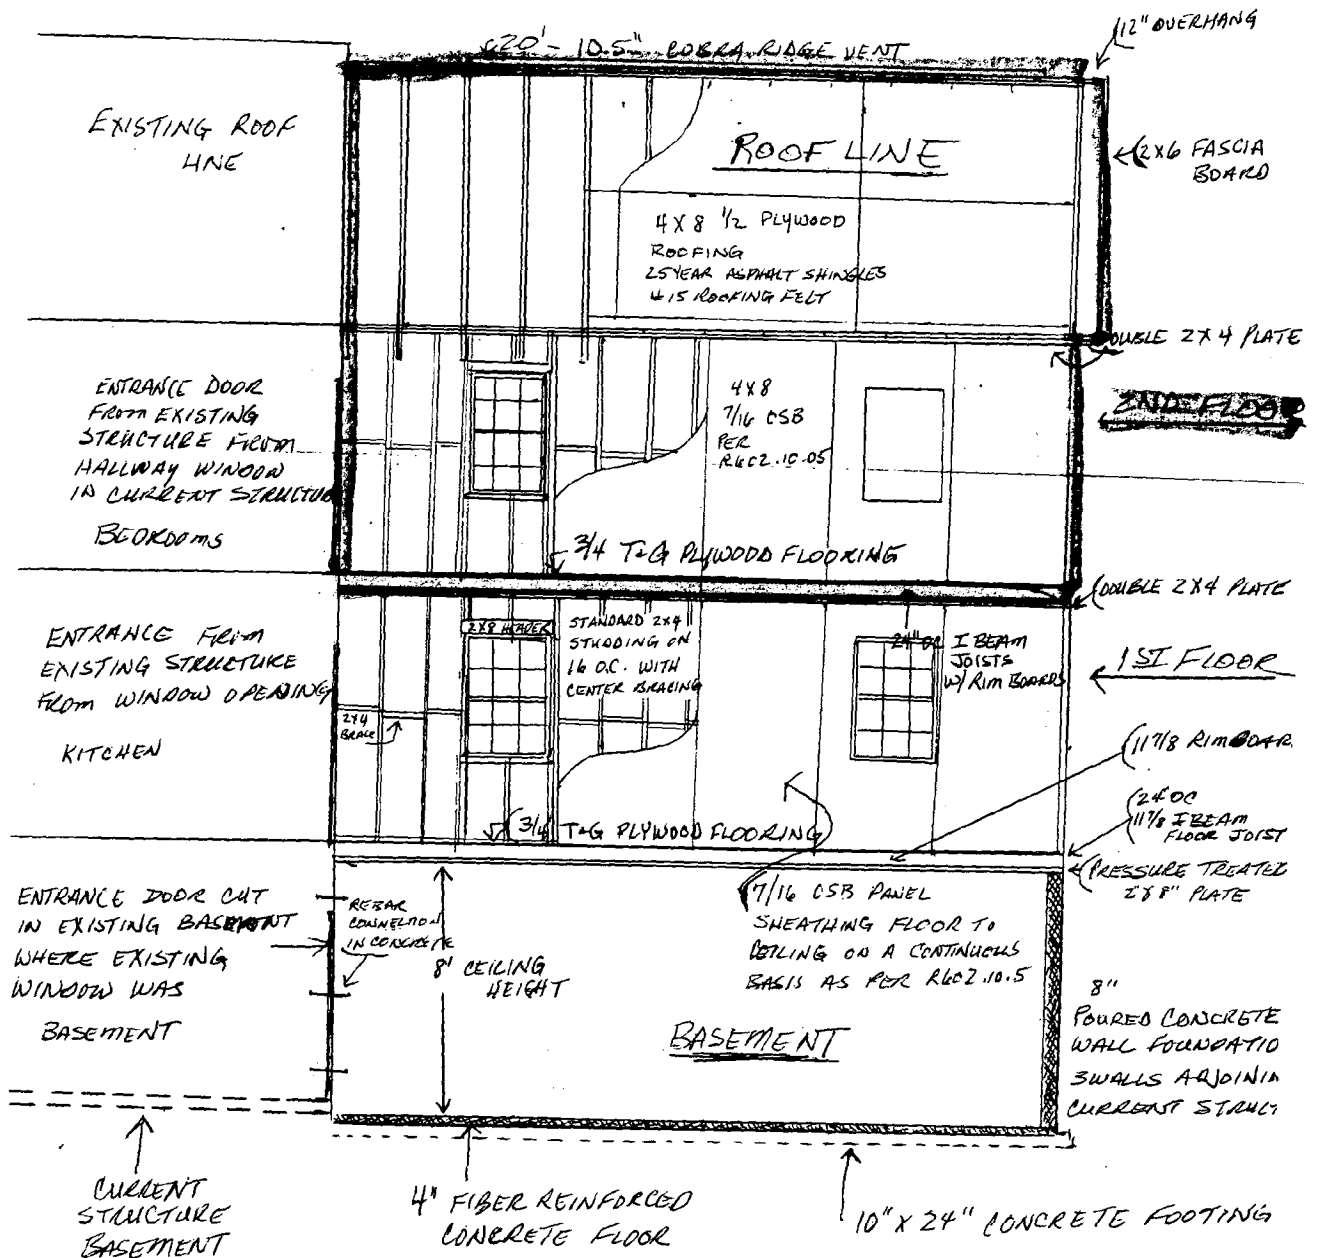 12" OVERHANG
20' - 10.5" COBRA RIDGE VENT
EXISTING ROOF
LINE
ROOF LINE
2X6 FASCIA
BOARD
4 X 8 1/2 PLYWOOD
ROOFING
25 YEAR ASPHALT SHINGLES
#15 ROOFING FELT
DOUBLE 2X4 PLATE
ENTRANCE DOOR
FROM EXISTING
STRUCTURE FROM
HALLWAY WINDOW
IN CURRENT STRUCTU
BEDROOMS
4X8
7/16 OSB
PER
R602.10.05
2ND FLOOR
3/4 T+G PLYWOOD FLOORING
DOUBLE 2X4 PLATE
ENTRANCE FROM
EXISTING STRUCTURE
FROM WINDOW OPENING
KITCHEN
2X8 HEADER
STANDARD 2X4
STUDDING ON
16 O.C. WITH
CENTER BRACING
24" OC I BEAM
JOISTS
W/ RIM BOARDS
1ST FLOOR
2X4
BRACE
11 7/8 RIMBOAR
24 OC
11 7/8 I BEAM
FLOOR JOIST
3/4 T+G PLYWOOD FLOORING
PRESSURE TREATED
2X8" PLATE
ENTRANCE DOOR CUT
IN EXISTING BASEMENT
WHERE EXISTING
WINDOW WAS
BASEMENT
REBAR
CONNECTION
IN CONCRETE
8' CEILING
HEIGHT
7/16 OSB PANEL
SHEATHING FLOOR TO
CEILING ON A CONTINUOUS
BASIS AS PER R602.10.5
BASEMENT
8"
POURED CONCRETE
WALL FOUNDATIO
3 WALLS ADJOININ
CURRENT STRUC
CURRENT
STRUCTURE
BASEMENT
4" FIBER REINFORCED
CONCRETE FLOOR
10" X 24" CONCRETE FOOTING